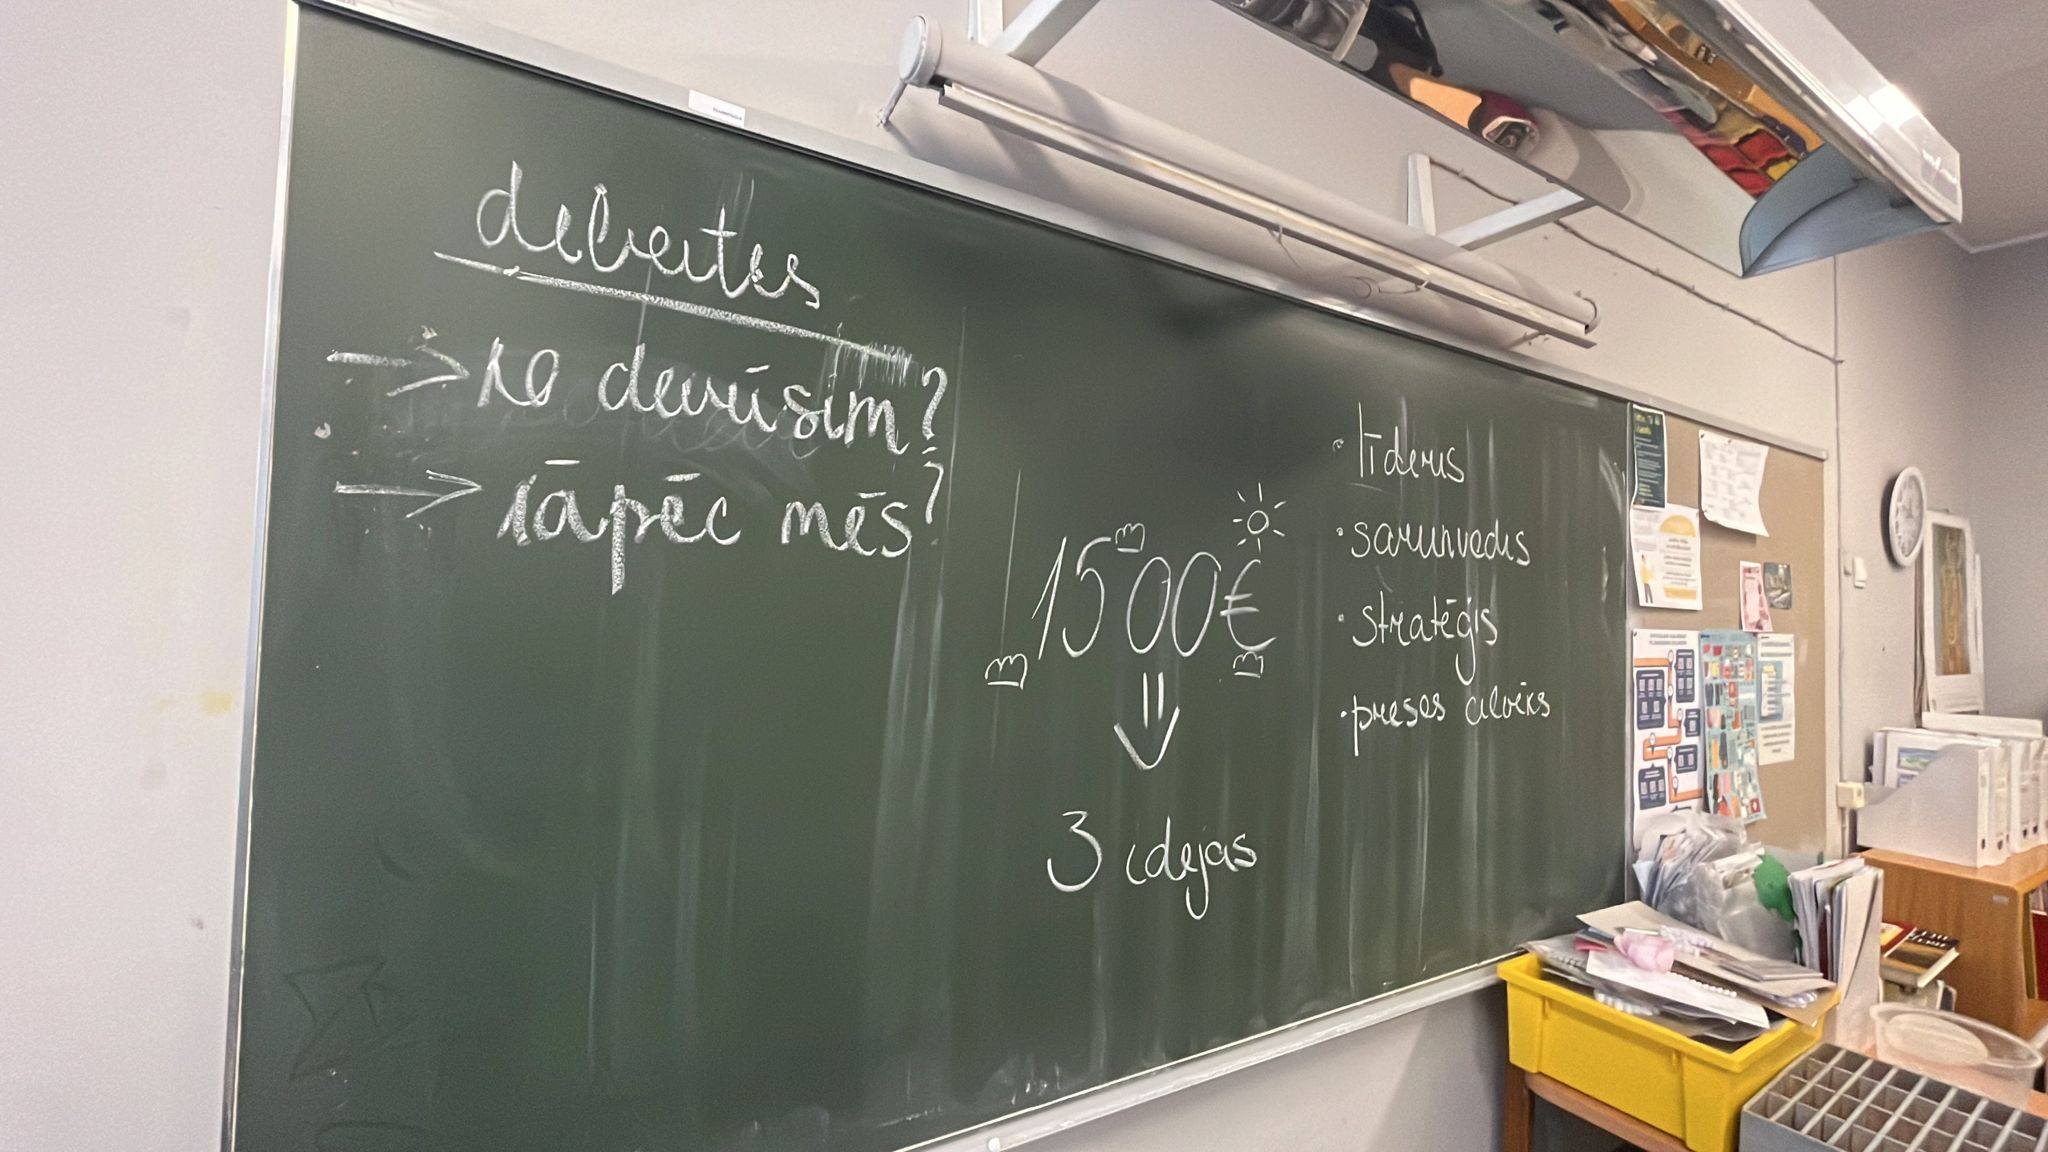 debates
→ ko darīsim?
→ kāpēc mēs?
1500€
3 idejas
· līderis
· sarunvedis
· stratēģis
· preses cilvēks